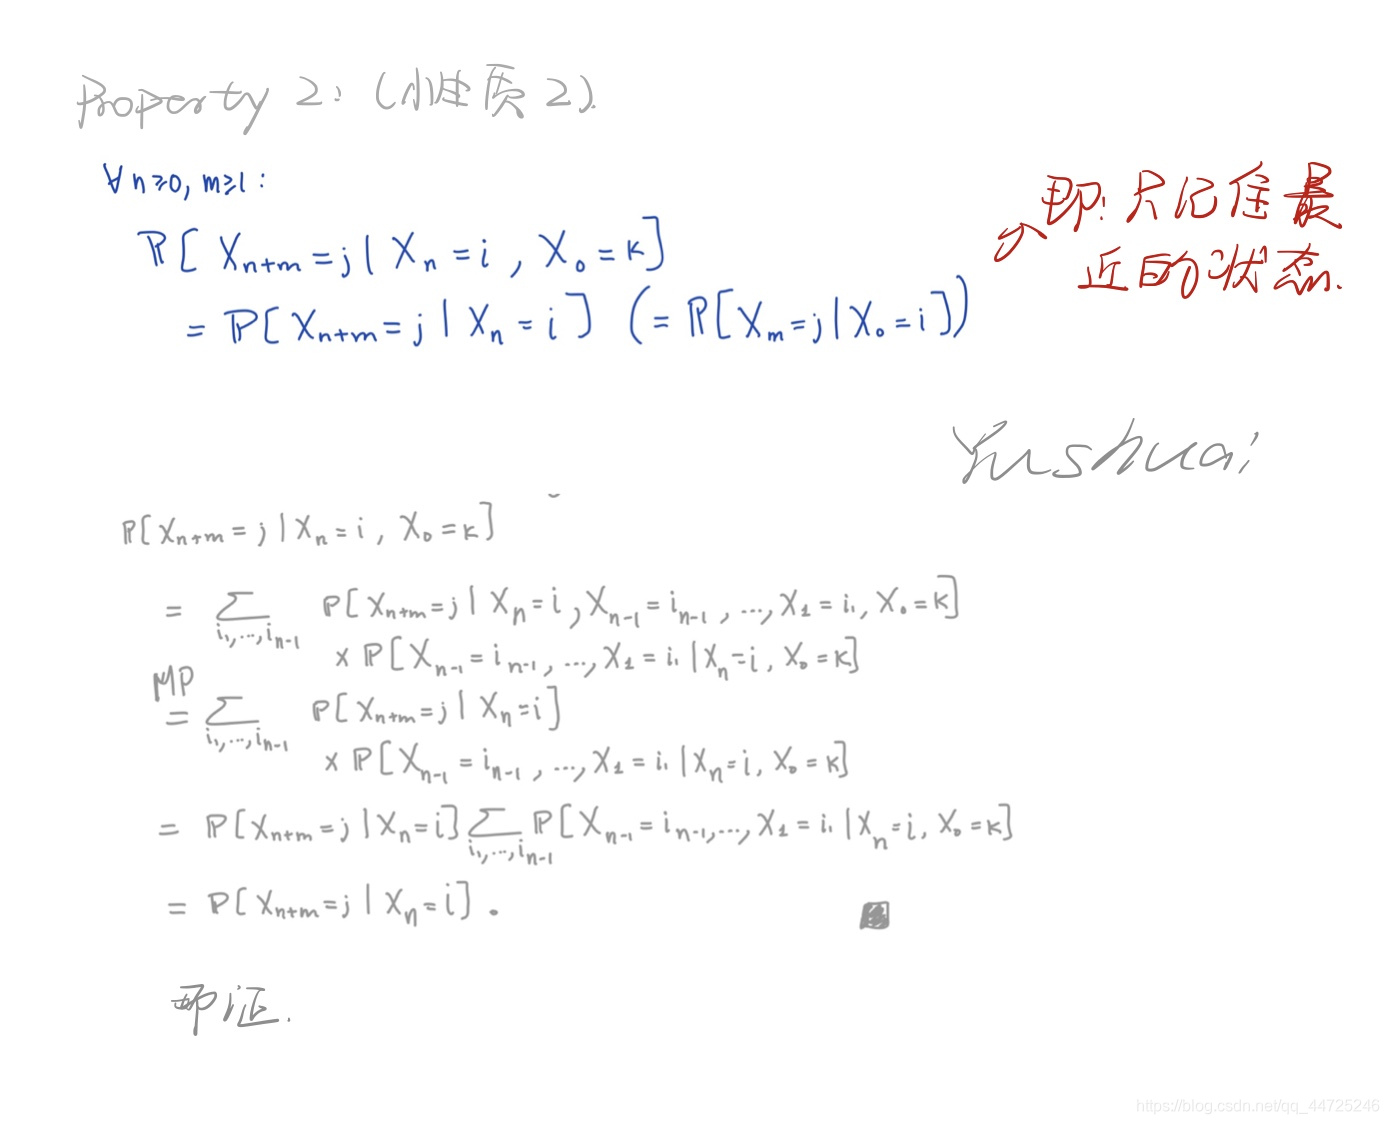 Property 2: (小性质2).
∀ n≥0, m≥1:
P[ X_{n+m} = j | X_n = i , X_0 = k ]
= P[ X_{n+m} = j | X_n = i ] (= P[ X_m = j | X_0 = i ])
即: 只记住最
近的状态.
Yushuai
P[ X_{n+m} = j | X_n = i , X_0 = k ]
= Σ_{i_1,...,i_{n-1}} P[ X_{n+m} = j | X_n = i , X_{n-1} = i_{n-1} , ..., X_1 = i_1, X_0 = k ]
× P[ X_{n-1} = i_{n-1}, ..., X_1 = i_1 | X_n = i, X_0 = k ]
MP
= Σ_{i_1,...,i_{n-1}} P[ X_{n+m} = j | X_n = i ]
× P[ X_{n-1} = i_{n-1} , ..., X_1 = i_1 | X_n = i, X_0 = k ]
= P[ X_{n+m} = j | X_n = i ] Σ_{i_1,...,i_{n-1}} P[ X_{n-1} = i_{n-1}, ..., X_1 = i_1 | X_n = i, X_0 = k ]
= P[ X_{n+m} = j | X_n = i ] .
即证.
https://blog.csdn.net/qq_44725246